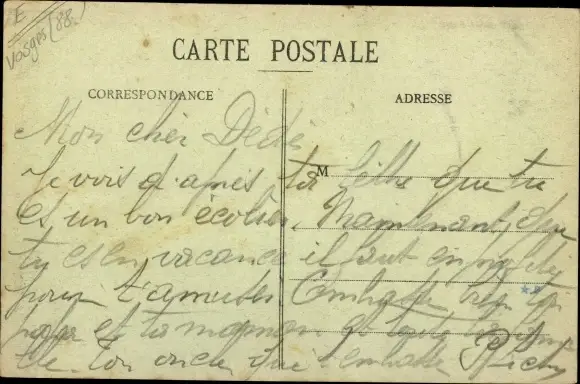 E
Vosges (88)
CARTE POSTALE
CORRESPONDANCE
ADRESSE
Mon cher Dédé
M
Je vois d'après ta lettre que tu
es un bon écolier. Maintenant que
tu es en vacance il faut en profiter
pour t'amuser. Embrasse bien ton
papa et ta maman et
de ton oncle qui t'embrasse